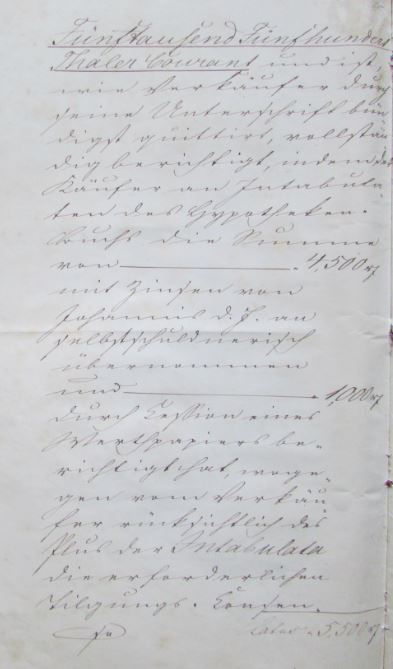 Fünftausend Fünfhundert
Thaler Courant und ist,
wie Verkäufer durch
seine Unterschrift bün
digst quittirt, vollstän
dig berichtigt, indem der
Käufer an Intabula-
ten des Hypotheken-
Buchs die Summe
von 4,500 rt
mit Zinsen von
Johannis d. J. an
selbstschuldnerisch
übernommen
und 1,000 rt
durch Cession eines
Werthpapiers be-
richtigt hat, woge-
gen vom Verkäu
fer rücksichtlich des
Plus der Intabulata
die erforderlichen
Tilgungs-Consen-
se
Latus 5,500 rt